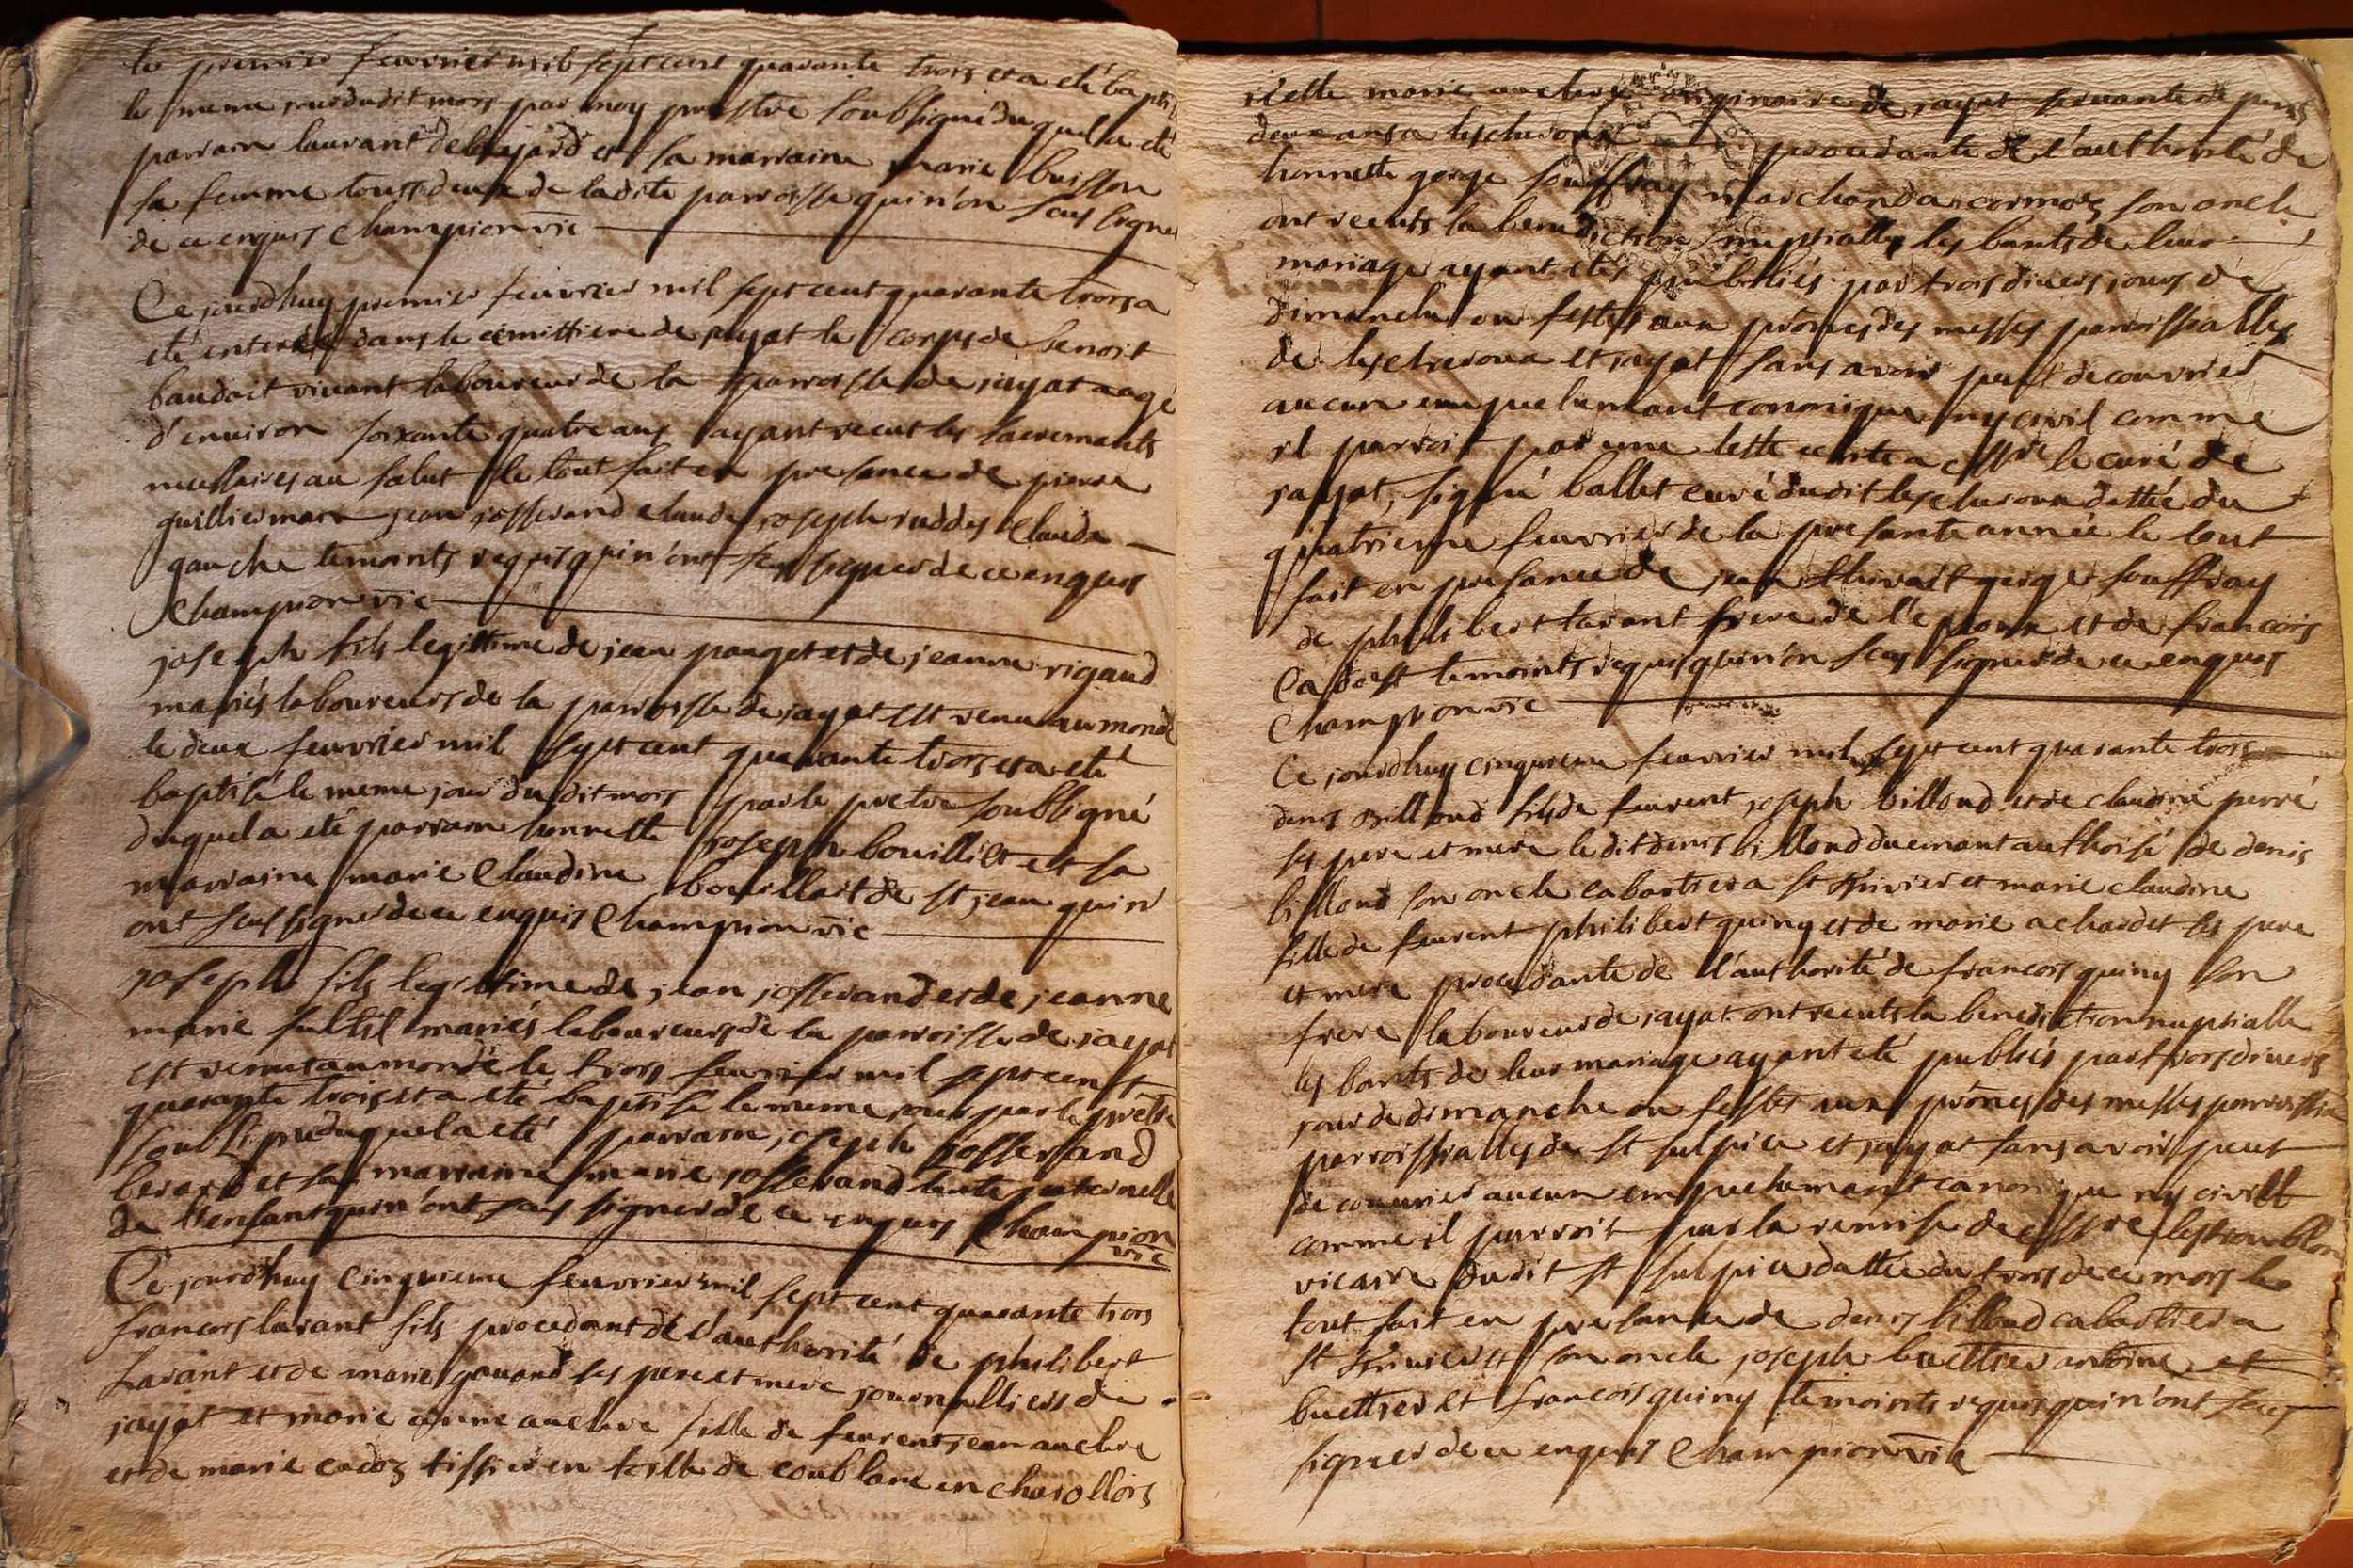 le premier feuvrier mil sept cent quarante trois et a eté baptis
le meme jour dudit mois par moy prestre soubsigné duquel a eté
parrain laurant debrejard et sa marraine marie buisson
sa femme tous deux de ladite parroisse qui n'on sceu signer
de ce enquis Champion vic
Ce jourdhuy premier feuvrier mil sept cent quarante trois a
eté enterré dans le cemittiere de jayat le corps de benoit
baudait vivant laboureur de la parroisse de jayat aagé
d'environ soixante quatre ans ayant receut les sacrements
necessaires au salut le tout fait en presance de pierre
guilliermain jean josserand claude joseph ruddes claude
gauche temoints requis qui n'ont sceu signer de ce enquis
Champion vic
joseph fils legittime de jean panget et de jeanne rigaud
mariés laboureurs de la parroisse de jayat est venu au monde
le deux feuvrier mil sept cent quarante trois et a eté
baptisé le meme jour du dit mois par le pretre soubsigné
duquel a eté parrain honnette joseph bouillilt et sa
marraine marie Claudine bouillait de st jean qui n'
ont sceu signer de ce enquis Champion vic
joseph fils legittime de jean josserand et de jeanne
marie sultil mariés laboureurs de la parroisse de jayat
est venus au monde le trois feuvrier mil sept cent
quarante trois et a eté baptisé le meme jour par le pretre
soubsigné duquel a eté parrain joseph josserand
berard et sa marraine marie josserand tante paternelle
de l'enfant qui n'ont sceu signer de ce enquis Champion
vic
Ce jourdhuy cinquieme feuvrier mil sept cent quarante trois
francois larant fils procedant de l'authorité de philibert
Larant et de marie gouand ses pere et mere journalliers de
jayat et marie anne auclere fille de feu rent jean auclere
et de marie cadoz tissier en toille de coublanc en charollois
icelle marie auclere originaire de jayat servante depuis
deux ans a lescheroux procedante de l'authorité de
honnette gorge souffray marchand a cormoz son oncle
ont receuts la benediction nuptialle les bants de leur
mariage ayant etes publiés par trois divers jours de
dimanche ou festes aux prônes des messes parroissialles
de lescheroux et jayat sans avoir peut decouvrier
aucun empechemant canonique ny civil comme
il parroit par une lette ecrite a messire le curé de
jayat, signé ballet curé dudit lescheroux dattée du
quatrieme feuvrier de la presante année le tout
fait en presance de jean thivait gorge souffray
de philibert larant frere de l'epoux et de francois
Cadoest temoints requis qui n'on sceu signer de ce enquis
Champion vic
Ce jourdhuy cinquieme feuvrier mil sept cent quarante trois
denis billoud fils de feu rent joseph billoud et de claudine perré
ses pere et mere le dit denis billoud duemant authorisé de denis
billoud son oncle cabartier a st trivier et marie claudine
fille de feu rent philibert quiny et de marie achardet ses pere
et mere procedante de l'authorité de francois quiny son
frere laboureur de jayat ont receuts la benediction nuptialle
les bants de leur mariage ayant eté publiés part trois divers
jour de dimanche ou festes aux prônes des messes parroissia
parroissialles de st sulpice et jayat sans avoir peut
decouvrier aucun empechemant canonique ny civill
comme il parroit par la remise de messire
vicaire dudit st sulpice dattée du trois de ce mois le
tout fait en presance de denis billoud cabartier a
st trivier et son oncle joseph buettier antoine et
buettier et francois quiny temoints requis qui n'ont sceu
signer de ce enquis Champion vic